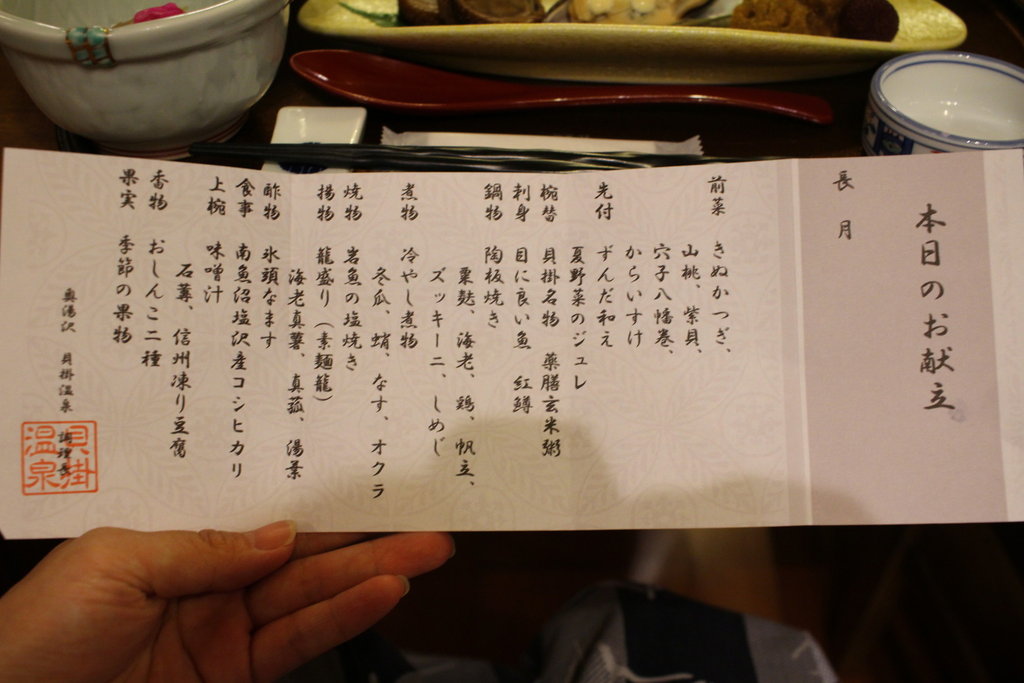 本日のお献立
長月
前菜 きぬかつぎ、
山桃、紫貝、
穴子八幡巻、
からいすけ
先付 ずんだ和え
夏野菜のジュレ
椀替 貝掛名物 薬膳玄米粥
刺身 目に良い魚 紅鱒
鍋物 陶板焼き
粟麩、海老、鶏、帆立、
ズッキーニ、しめじ
煮物 冷やし煮物
冬瓜、蛸、なす、オクラ
焼物 岩魚の塩焼き
揚物 籠盛り（素麺籠）
海老真薯、真菰、湯葉
酢物 氷頭なます
食事 南魚沼塩沢産コシヒカリ
上椀 味噌汁
石蓴、信州凍り豆腐
香物 おしんこ二種
果実 季節の果物
奥湯沢 貝掛温泉 調理長
貝掛
温泉